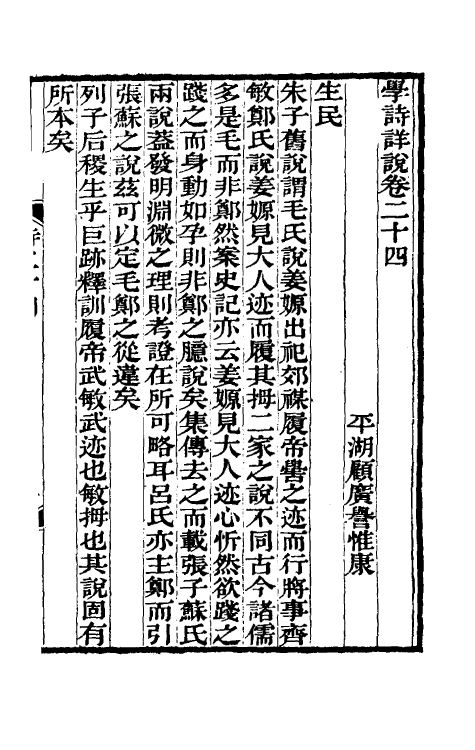 學詩詳說卷二十四
平湖顧廣譽惟康
生民
朱子舊說謂毛氏說姜嫄出祀郊禖履帝嚳之迹而行將事齊
敏鄭氏說姜嫄見大人迹而履其拇二家之說不同古今諸儒
多是毛而非鄭然案史記亦云姜嫄見大人迹心忻然欲踐之
踐之而身動如孕則非鄭之臆說矣集傳去之而載張子蘇氏
兩說葢發明淵微之理則考證在所可略耳呂氏亦主鄭而引
張蘇之說茲可以定毛鄭之從違矣
列子后稷生乎巨跡釋訓履帝武敏武迹也敏拇也其說固有
所本矣